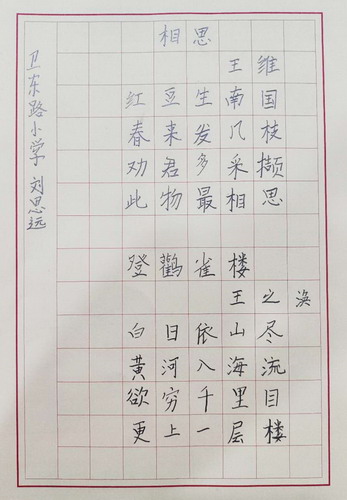 相思
王维
红豆生南国
春来发几枝
劝君多采撷
此物最相思
登鹳雀楼
王之涣
白日依山尽
黄河入海流
欲穷千里目
更上一层楼
卫东路小学 刘思远